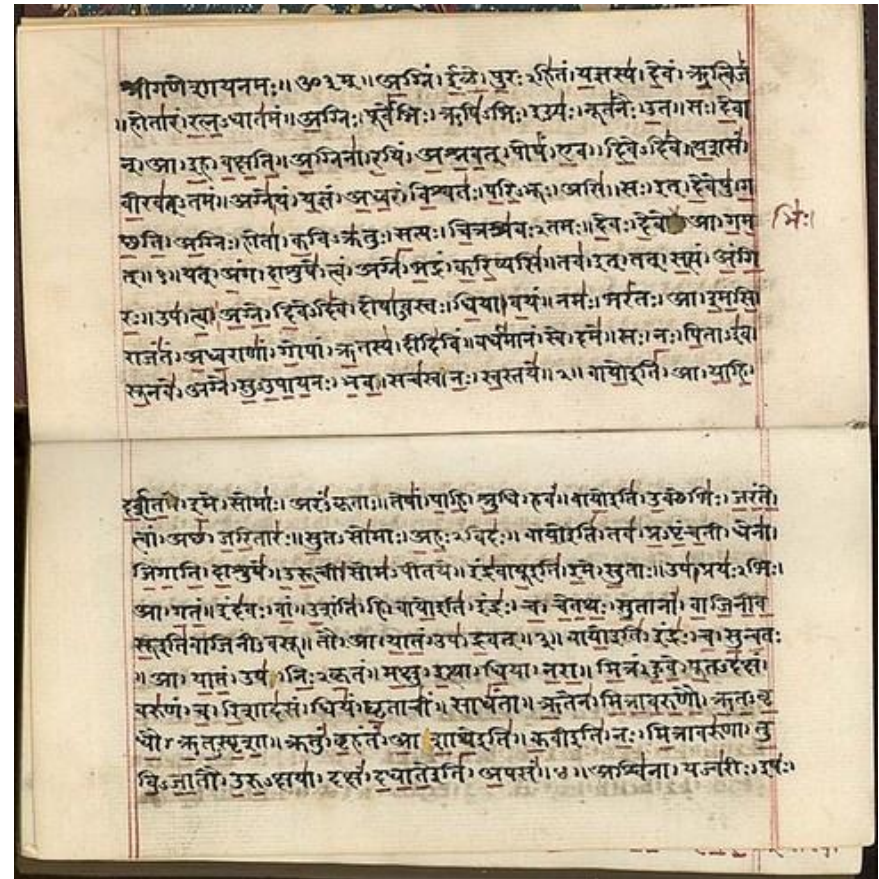 श्रीगणेशायनमः॥ॐ३म्॥अ॒ग्निं। ई॒ळे॒। पु॒रःऽहि॑तं। य॒ज्ञस्य॑। दे॒वं। ऋ॒त्विजं॑
॥होता॑रं। र॒त्न॒ऽधात॑मं॥अ॒ग्निः। पूर्वे॑भिः। ऋषि॑ऽभिः। ईड्यः॑। नूत॑नैः। उ॒त॥सः। दे॒वा
न्। आ। इ॒ह। व॒क्ष॒ति॒॥अ॒ग्निना॑। र॒यिं। अ॒श्न॒व॒त्। पोषं॑। ए॒व। दि॒वेऽदि॑वे॥य॒शसं॑
वी॒रव॑त्ऽतमं॥अग्ने॑। यं। य॒ज्ञं। अ॒ध्व॒रं। वि॒श्वतः॑। प॒रि॒ऽभूः। असि॑॥सः। इत्। दे॒वेषु॑। ग॒
च्छ॒ति॒। अ॒ग्निः। होता॑। क॒विऽक्र॑तुः। स॒त्यः। चि॒त्रश्र॑वःऽतमः॥दे॒वः। दे॒वे। आ। ग॒म॒
भिः।
त्॥१॥यत्। अं॒ग। दा॒शुषे॑। त्वं। अग्ने॑। भ॒द्रं। क॒रि॒ष्यसि॑॥तव॑। इत्। तत्। स॒त्यं। अं॒गि॒
रः॒॥उप॑। त्वा॒। अ॒ग्ने॒। दि॒वेऽदि॑वे। दोषा॑ऽवस्तः। धि॒या। व॒यं॥नमः॑। भरं॑तः। आ। इ॒म॒सि॒
राजं॑तं। अ॒ध्व॒राणां॑। गो॒पां। ऋ॒तस्य॑। दीदि॑विं॥वर्ध॑मानं। स्वे। दमे॑॥सः। नः॒। पि॒ताऽइ॑व।
सू॒नवे॑। अग्ने॑। सु॒ऽउ॒पा॒य॒नः। भ॒व॒। सच॑स्व। नः॒। स्व॒स्तये॑॥२॥वायो॒इति॑। आ। या॒हि॒।
द॒र्श॒त॒। इ॒मे। सोमाः॑। अरं॑ऽकृताः॥तेषां॑। पा॒हि॒। श्रु॒धि। हवं॑॥वायो॒इति॑। उ॒क्थेभिः॑। ज॒रं॒ते॒।
त्वां। अच्छ॑। ज॒रि॒तारः॑॥सु॒तऽसो॑माः। अ॒हः॒ऽविदः॑॥वायो॒इति॑। तव॑। प्र॒ऽपृं॒च॒ती। धेना॑।
जि॒गा॒ति॒। दा॒शुषे॑॥उ॒रू॒ची। सोम॑ऽपीतये॥इंद्र॑वायू॒इति॑। इ॒मे। सु॒ताः॥उप॑। प्रयः॑ऽभिः।
आ। ग॒तं॒॥इंद॑वः। वां॒। उ॒शंति॑। हि॥वायो॒इति॑। इंद्रः॑। च॒। चे॒त॒थः॒। सु॒तानां॑। वा॒जि॒नी॒व॒
सू॒इति॑वाजिनीऽवसू॥तौ। आ। या॒तं॒। उप॑। द्र॒वत्॥३॥वायो॒इति॑। इंद्रः॑। च॒। सु॒न्व॒तः
॥आ। या॒तं॒। उप॑। निः॒ऽकृ॒तं॥म॒क्षु। इ॒त्था। धि॒या। न॒रा॒॥मि॒त्रं। हु॒वे॒। पू॒तऽद॑क्षं।
वरु॑णं। च॒। रि॒शाद॑सं। धियं॑। घृ॒ताचीं॑। साधं॑ता॥ऋ॒तेन॑। मि॒त्रा॒व॒रु॒णौ॒। ऋ॒त॒ऽवृ॒
धौ॒। ऋ॒त॒ऽस्पृ॒शा॒॥क्रतुं॑। बृ॒हंतं॑। आ॒शा॒थे॒इति॑॥क॒वीइति॑। नः॒। मि॒त्रावरु॑णा। तु॒
वि॒ऽजा॒तौ। उ॒रु॒ऽक्षया॑। दक्षं॑। द॒धा॒ते॒इति॑। अ॒पसं॑॥४॥अश्वि॑ना। यज्व॑रीः। इषः॑।